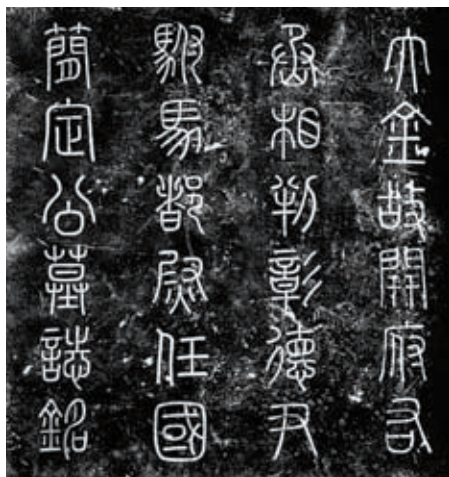 大金故開府右
丞相判彰德尹
駙馬都尉任國
簡定公墓誌銘